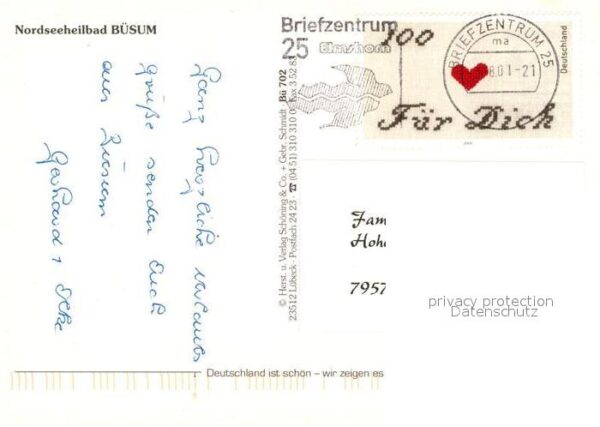 Nordseeheilbad BÜSUM
Ganz herzliche Urlaubs
grüße senden Euch
aus Büsum
Gerhard & Elke
© Herst. u. Verlag Schöning & Co. + Gebr. Schmidt Bü 702
23512 Lübeck · Postfach 24 23 · ☎ (04 51) 310 310 · Fax 3 52 83
Briefzentrum
25 Elmshorn
100
Für Dich
Deutschland
BRIEFZENTRUM 25
ma
8.01-21
Fam
Hohe
7957
privacy protection
Datenschutz
Deutschland ist schön – wir zeigen es